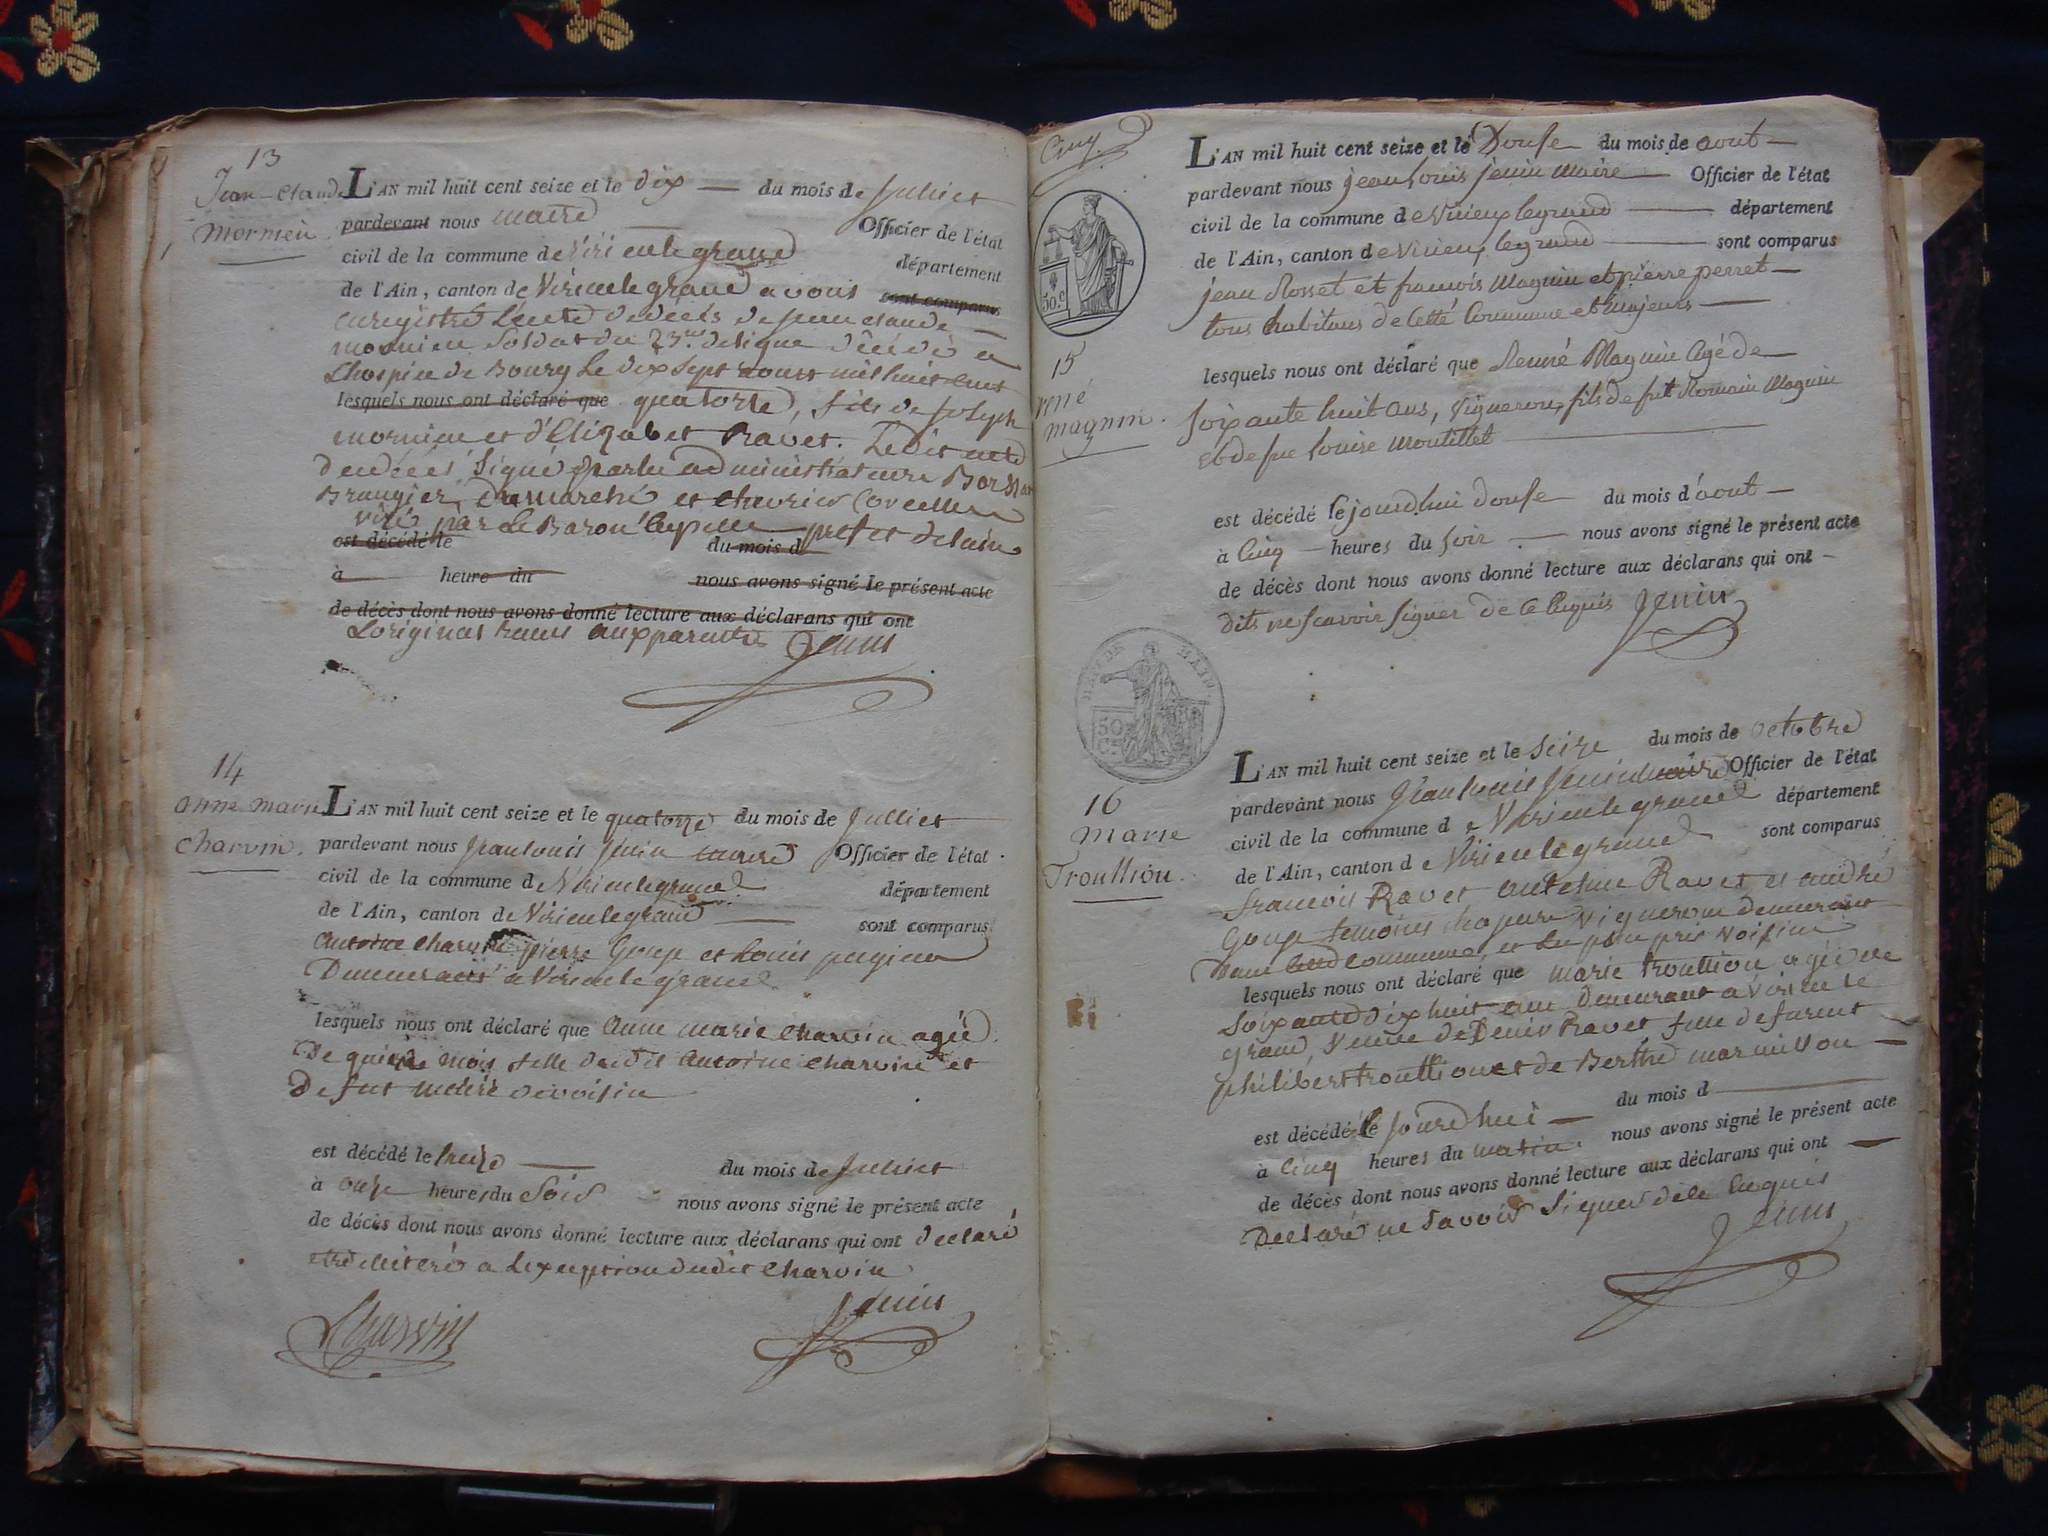 13
Jean-Claude
Mornieu
L'AN mil huit cent seize et le dix du mois de Julliet
pardevant nous maire Officier de l'état
civil de la commune de Virieulegrand département
de l'Ain, canton de Virieulegrand avons sont comparus
enregistré Lacte de deces de jean claude
mornieu Soldat du 23me de ligne décédé a
Lhospice de Bourg Le dix Sept mil huit cent
lesquels nous ont déclaré que quatorze, fils de joseph
mornieu et d'Elizabet Ravet. Ledit acte
de décés Signé par les administrateurs
Brangier, Dumarché et chevrier
visé par Le Baron prefet de lain
est décédé le du mois d
à heure du nous avons signé le présent acte
de décès dont nous avons donné lecture aux déclarans qui ont
Loriginal remis aux parents Jenin
14
anne marie
charvin.
L'AN mil huit cent seize et le quatorze du mois de Julliet
pardevant nous Jeanlouis Jenin maire Officier de l'état
civil de la commune de Virieulegrand département
de l'Ain, canton de Virieulegrand sont comparus
antoine charvin pierre Gouge et Louis pugieu
Demeurants a Virieulegrand
lesquels nous ont déclaré que anne marie charvin agée
De mois fille dudit antoine charvin et
De fut devoisin
est décédé le treize du mois de Julliet
à onze heures du Soir nous avons signé le présent acte
de décès dont nous avons donné lecture aux déclarans qui ont declaré
etre a Lexeption dudit charvin
Charvin Jenin
Cinq
50 c
15
rené
magnin.
L'AN mil huit cent seize et le Douse du mois de aout
pardevant nous jean louis jenin maire Officier de l'état
civil de la commune de Virieux legrand département
de l'Ain, canton de Virieux legrand sont comparus
jean Rosset et francois Magnin et pierre perret
tous habitans de Cette Commune et majeurs
lesquels nous ont déclaré que Renné Magnin Agé de
soixante huit ans, Vigneron, fils de fut Romain Magnin
et de fue Louise Moutillet
est décédé le jourdhui douse du mois d'aout
à Cinq heures du soir nous avons signé le présent acte
de décès dont nous avons donné lecture aux déclarans qui ont
dits ne scavoir signer de ce Enquis Jenin
50
C.
16
marie
Troullion.
L'AN mil huit cent seize et le seize du mois de octobre
pardevant nous Jeanlouis Jenin maire Officier de l'état
civil de la commune de Virieulegrand département
de l'Ain, canton de Virieulegrand sont comparus
francois Ravet antelme Ravet et andré
Gouge temoins Vigneron demeurant
commune, et Les plus pres Voisins
lesquels nous ont déclaré que marie troullion agée de
soixante dix huit ans Demeurant a Virieule
grand, Veuve de Denis Ravet fille de furent
philibert troullion et de Berthe marmillon
est décédé le jourdhui du mois d
à Cinq heures du matin nous avons signé le présent acte
de décès dont nous avons donné lecture aux déclarans qui ont
Declaré ne savoir Signer de ce Enquis
Jenin